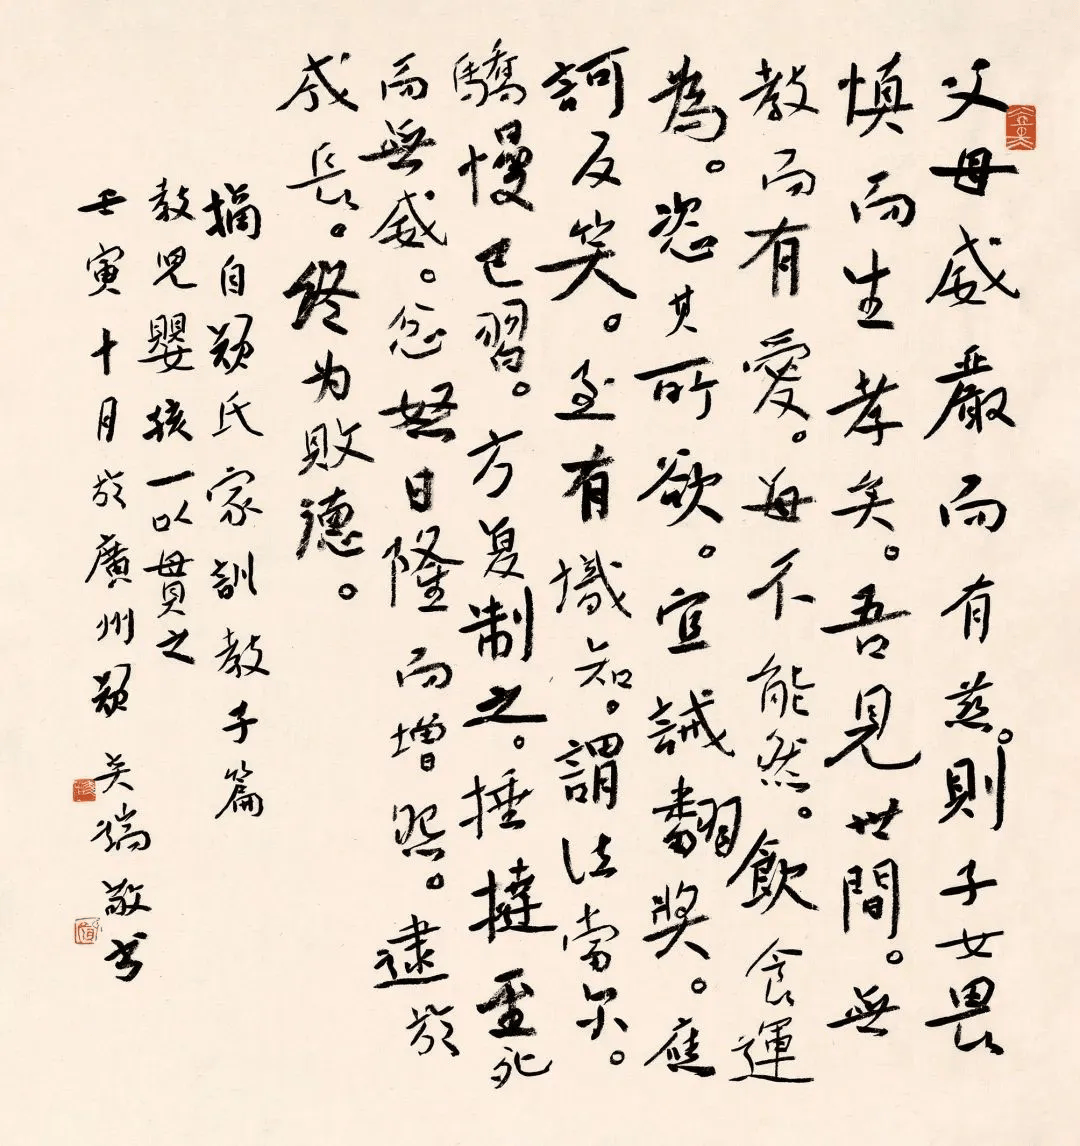 父母威嚴而有慈。則子女畏
慎而生孝矣。吾見世間。無
教而有愛。每不能然。飲食運
為。恣其所欲。宜誡翻獎。應
訶反笑。至有識知。謂法當尔。
驕慢已習。方复制之。捶撻至死
而無威。忿怒日隆而增怨。逮於
成長。終为敗德。
摘自顏氏家訓教子篇
教兒嬰孩一以貫之
壬寅十月於廣州顏吴端敬书